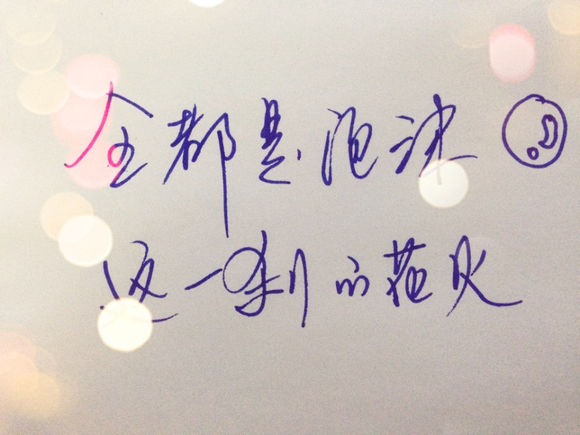 全都是泡沫
这一刹的花火